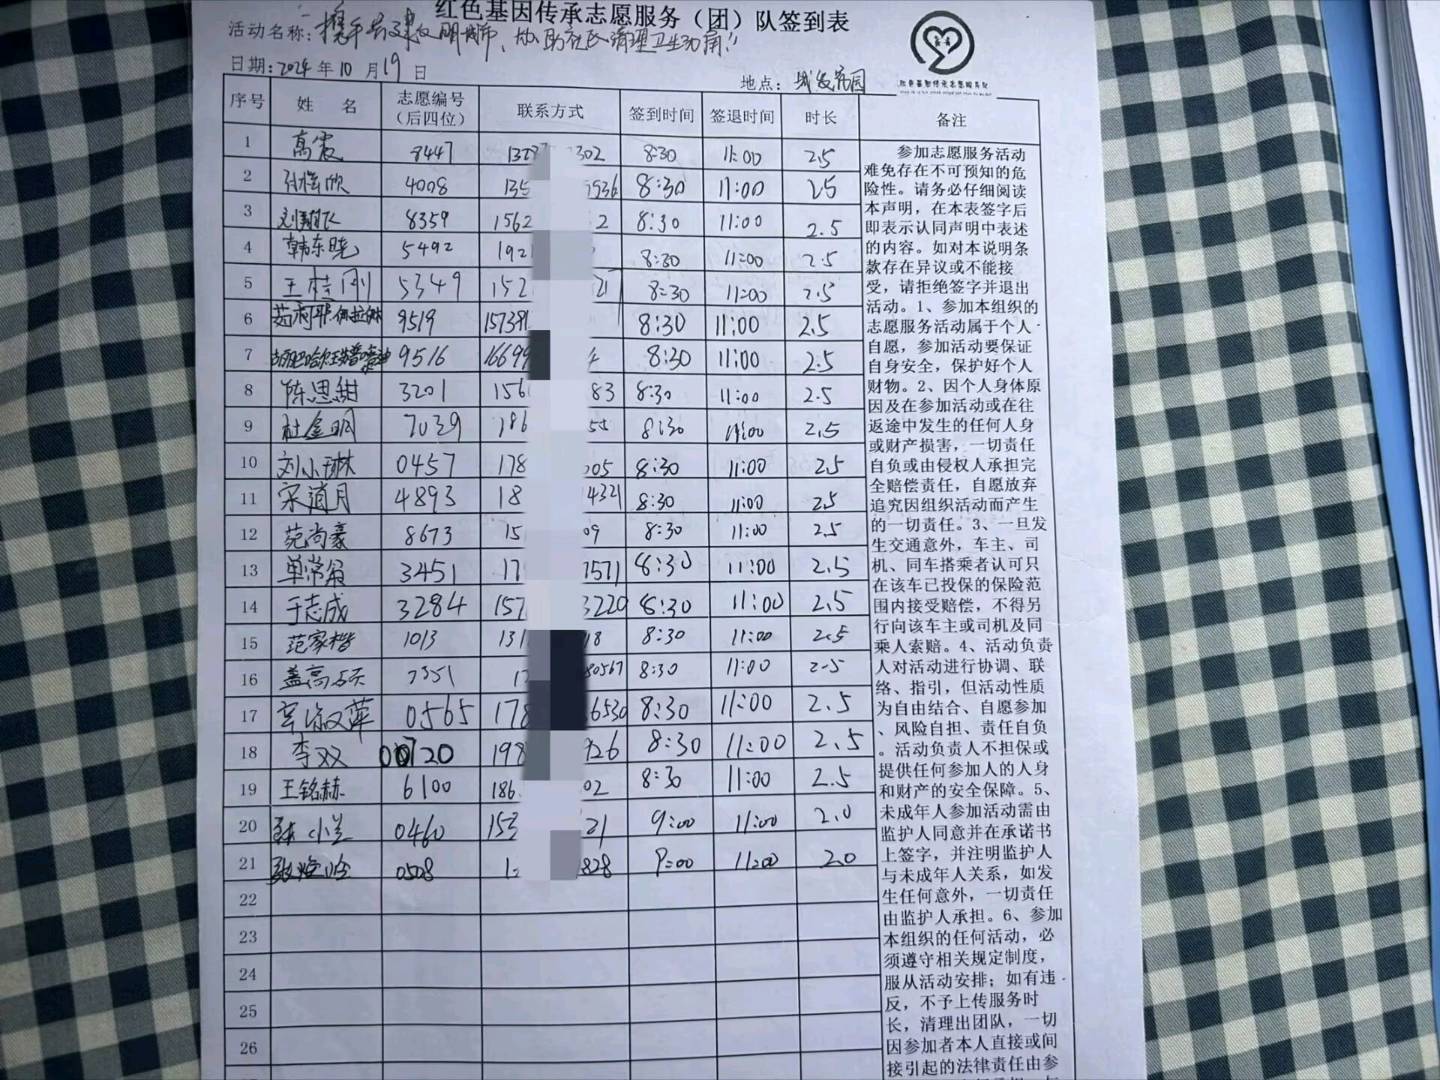 红色基因传承志愿服务（团）队签到表
活动名称：
日期：2024年10月19日
地点：
红色基因传承志愿服务队
序号 姓名 志愿编号（后四位） 联系方式 签到时间 签退时间 时长 备注
1 高霞 8447 8:30 11:00 2.5
2 4008 135 9936 8:30 11:00 25
3 8359 1562 2 8:30 11:00 2.5
4 韩东晓 5492 192 8:30 11:00 2.5
5 王桂刚 5349 152 21 8:30 11:00 2.5
6 9519 15739 8:30 11:00 2.5
7 9516 16699 8:30 11:00 2.5
8 陈思甜 3201 156 83 8:30 11:00 2.5
9 杜金明 7039 186 55 8:30 11:00 2.5
10 刘小琳 0457 178 005 8:30 11:00 2.5
11 宋道月 4893 18 4321 8:30 11:00 2.5
12 范尚豪 8673 15 09 8:30 11:00 2.5
13 3451 17 7571 8:30 11:00 2.5
14 于志成 3284 157 3220 8:30 11:00 2.5
15 范家楷 1013 131 18 8:30 11:00 2.5
16 7351 80567 8:30 11:00 2.5
17 0565 178 6530 8:30 11:00 2.5
18 李双 198 926 8:30 11:00 2.5
19 王铭赫 6100 186 02 8:30 11:00 2.5
20 0460 153 21 9:00 11:00 2.0
21 0508 828 9:00 11:00 20
22
23
24
25
26
参加志愿服务活动
难免存在不可预知的危
险性。请务必仔细阅读
本声明，在本表签字后
即表示认同声明中表述
的内容。如对本说明条
款存在异议或不能接
受，请拒绝签字并退出
活动。1、参加本组织的
志愿服务活动属于个人
自愿，参加活动要保证
自身安全，保护好个人
财物。2、因个人身体原
因及在参加活动或在往
返途中发生的任何人身
或财产损害，一切责任
自负或由侵权人承担完
全赔偿责任，自愿放弃
追究因组织活动而产生
的一切责任。3、一旦发
生交通意外，车主、司
机、同车搭乘者认可只
在该车已投保的保险范
围内接受赔偿，不得另
行向该车主或司机及同
乘人索赔。4、活动负责
人对活动进行协调、联
络、指引，但活动性质
为自由结合、自愿参加
、风险自担、责任自负
。活动负责人不担保或
提供任何参加人的人身
和财产的安全保障。5、
未成年人参加活动需由
监护人同意并在承诺书
上签字，并注明监护人
与未成年人关系，如发
生任何意外，一切责任
由监护人承担。6、参加
本组织的任何活动，必
须遵守相关规定制度，
服从活动安排；如有违
反，不予上传服务时
长，清理出团队，一切
因参加者本人直接或间
接引起的法律责任由参